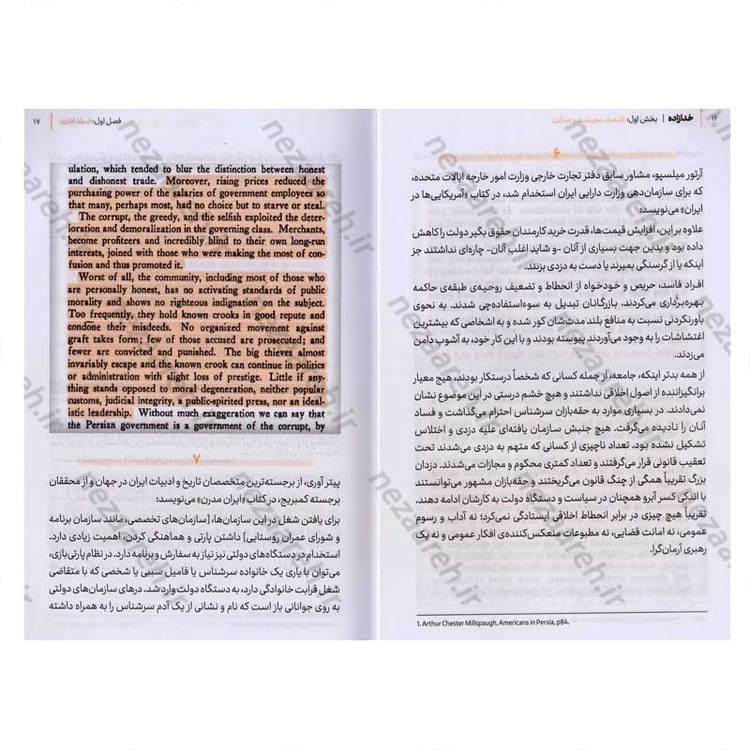 خدازاده | بخش اول: اقتصاد، معیشت و عدالت
۶
آرتور میلسپو، مشاور سابق دفتر تجارت خارجی وزارت امور خارجه ایالات متحده،
که برای سازمان‌دهی وزارت دارایی ایران استخدام شد، در کتاب «آمریکایی‌ها در
ایران» می‌نویسد:
علاوه بر این، افزایش قیمت‌ها، قدرت خرید کارمندان حقوق بگیر دولت را کاهش
داده بود و بدین جهت بسیاری از آنان - و شاید اغلب آنان- چاره‌ای نداشتند جز
اینکه یا از گرسنگی بمیرند یا دست به دزدی بزنند.
افراد فاسد، حریص و خودخواه از انحطاط و تضعیف روحیه‌ی طبقه‌ی حاکمه
بهره‌برداری می‌کردند. بازرگانان تبدیل به سوءاستفاده‌چی شدند. به نحوی
باورنکردنی نسبت به منافع بلند مدت‌شان کور شده و به اشخاصی که بیشترین
اغتشاشات را به وجود می‌آوردند پیوسته بودند و با این کار خود، به آشوب دامن
می‌زدند.
از همه بدتر اینکه، جامعه، از جمله کسانی که شخصاً درستکار بودند، هیچ معیار
برانگیزاننده از اصول اخلاقی نداشتند و هیچ خشم درستی در این موضوع نشان
نمی‌دادند. در بسیاری موارد به حقه‌بازان سرشناس احترام می‌گذاشت و فساد
آنان را نادیده می‌گرفت. هیچ جنبش سازمان یافته‌ای علیه دزدی و اختلاس
تشکیل نشده بود. تعداد ناچیزی از کسانی که متهم به دزدی می‌شدند تحت
تعقیب قانونی قرار می‌گرفتند و تعداد کمتری محکوم و مجازات می‌شدند. دزدان
بزرگ تقریباً همگی از چنگ قانون می‌گریختند و حقه‌بازان مشهور می‌توانستند
با اندکی کسر آبرو همچنان در سیاست و دستگاه دولت به کارشان ادامه دهند.
تقریباً هیچ چیزی در برابر انحطاط اخلاقی ایستادگی نمی‌کرد؛ نه آداب و رسوم
عمومی، نه امانت قضایی، نه مطبوعات منعکس‌کننده‌ی افکار عمومی و نه یک
رهبری آرمان‌گرا.
1. Arthur Chester Millspaugh, Americans in Persia, p84.
فصل اول: | ۱۷
ulation, which tended to blur the distinction between honest
and dishonest trade. Moreover, rising prices reduced the
purchasing power of the salaries of government employees so
that many, perhaps most, had no choice but to starve or steal.
The corrupt, the greedy, and the selfish exploited the deter-
ioration and demoralization in the governing class. Merchants,
become profiteers and incredibly blind to their own long-run
interests, joined with those who were making the most of con-
fusion and thus promoted it.
Worst of all, the community, including most of those who
are personally honest, has no activating standards of public
morality and shows no righteous indignation on the subject.
Too frequently, they hold known crooks in good repute and
condone their misdeeds. No organized movement against
graft takes form; few of those accused are prosecuted; and
fewer are convicted and punished. The big thieves almost
invariably escape and the known crook can continue in politics
or administration with slight loss of prestige. Little if any-
thing stands opposed to moral degeneration, neither popular
customs, judicial integrity, a public-spirited press, nor an ideal-
istic leadership. Without much exaggeration we can say that
the Persian government is a government of the corrupt, by
۷
پیتر آوری، از برجسته‌ترین متخصصان تاریخ و ادبیات ایران در جهان و از محققان
برجسته کمبریج، در کتاب «ایران مدرن» می‌نویسد:
برای یافتن شغل در این سازمان‌ها، [سازمان‌های تخصصی، مانند سازمان برنامه
و شورای عمران روستایی] داشتن پارتی و هماهنگی کردن، اهمیت زیادی دارد.
استخدام در دستگاه‌های دولتی نیز نیاز به سفارش و برنامه دارد. در نظام پارتی‌بازی،
می‌توان با یاری یک خانواده سرشناس یا فامیل سببی یا شخصی که با متقاضی
شغل قرابت خانوادگی دارد، به دستگاه دولت وارد شد. درهای سازمان‌های دولتی
به روی جوانانی باز است که نام و نشانی از یک آدم سرشناس را به همراه داشته
nezaareh.ir